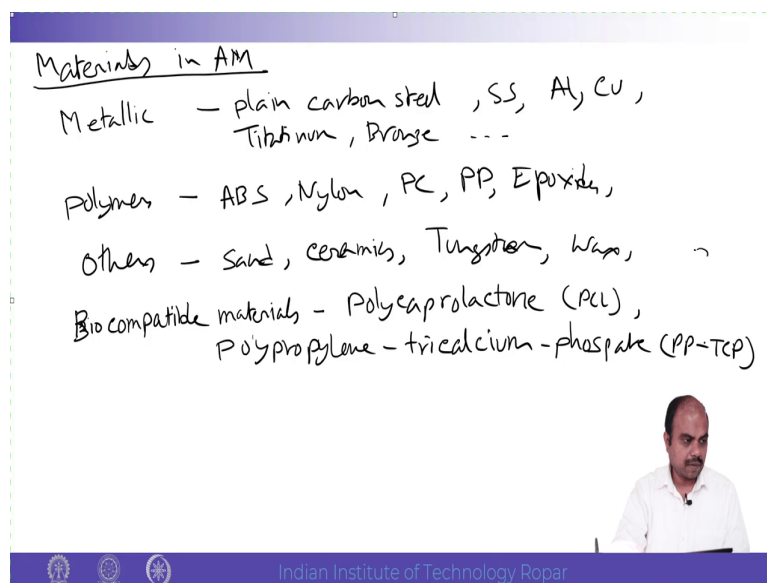 Materials in AM
Metallic – plain carbon steel, SS, Al, Cu,
Titatinum, Bronze ---
Polymers – ABS, Nylon, PC, PP, Epoxides,
Others – Sand, ceramics, Tungsten, Wax,
Biocompatible materials – Polycaprolactone (PCL),
Polypropylene – tricalcium – phospate (PP–TCP)
Indian Institute of Technology Ropar